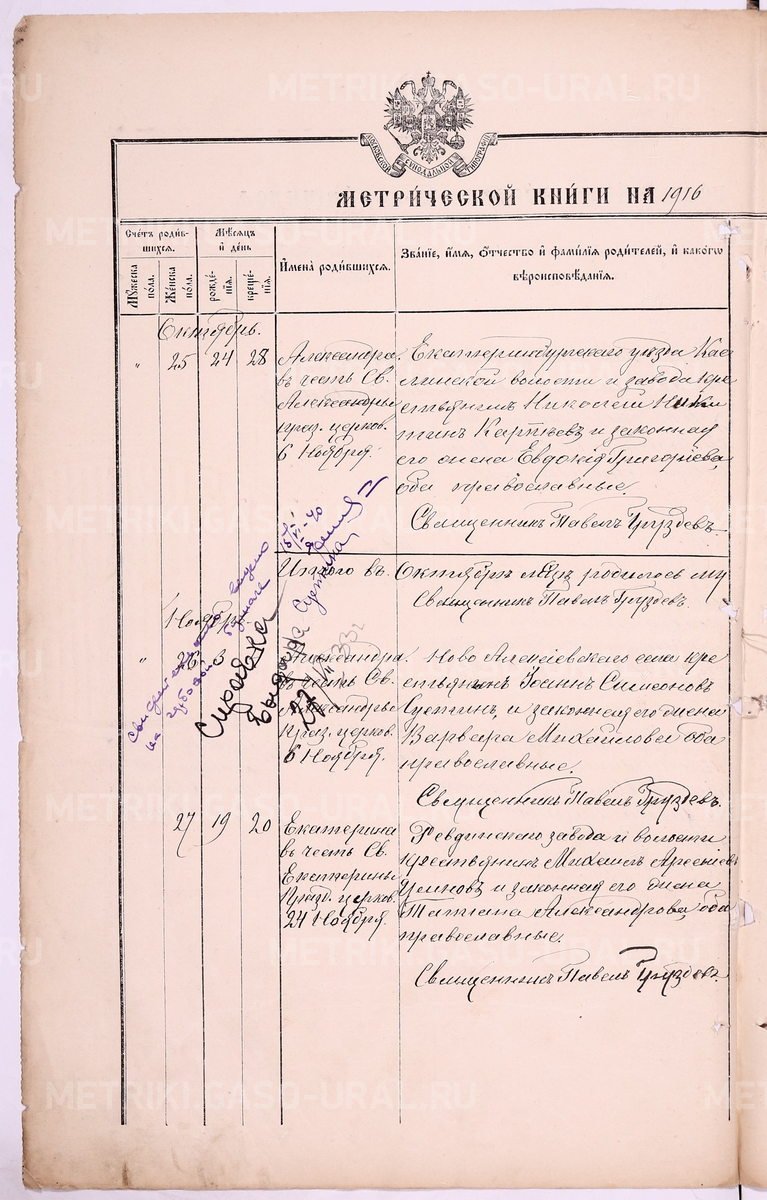 МОСКОВСКОЙ СѴНОДАЛЬНОЙ ТИПОГРАФІИ
МЕТРИ́ЧЕСКОЙ КНИ́ГИ НА 1916
Сче́тъ роди́в-
шихся.
Му́жеска по́ла.
Же́нска по́ла.
Мѣ́сяцъ
и҆ де́нь
рожде́-
нїя.
креще́-
нїя.
И҆мена̀ роди́вшихся.
Зва́нїе, и҆́мя, о҆́тчество и҆ фами́лїя роди́телей, и҆ како́гѡ
вѣроисповѣ́данїя.
Октябрь.
" 25 24 28
Александра.
въ честь Св.
Александры
праз. церков.
6 Ноября.
Екатеринбургскаго уѣзда Кас
линской волости и завода кре
стьянинъ Николай Ники
тинъ Карпѣевъ и законная
его жена Евдокія Григоріева,
оба православные.
Священникъ Павелъ Груздевъ.
Итого въ. Октябрѣ мѣсяцѣ родилось му
Священникъ Павелъ Груздевъ.
Ноябрь.
" 26 3
Александра.
въ честь Св.
Александры
праз. церков.
6 Ноября.
Ново Алексіевскаго села кре
стьянинъ Іоаннъ Симеоновъ
и законная его жена
Варвара Михайлова оба
православные.
Священникъ Павелъ Груздевъ.
27 19 20
Екатерина
въ честь Св.
Екатерины
Празд. церков.
24 Ноября.
Ревдинскаго завода и волости
крестьянинъ Михаилъ Арсеніевъ
Умновъ и законная его жена
Татіана Александрова, оба
православные.
Священникъ Павелъ Груздевъ.
Справка
выдана
27/VII 33г
METRIKI.GASO-URAL.RU